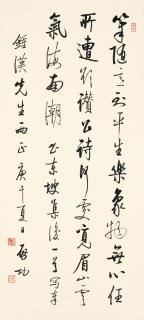 筆隨意到平生樂象物無心任
所遭欲讚公詩何處覓眉山雲
氣海南潮 書東坡集後一首寫奉
鍾漢先生兩正 庚午夏日 啟功